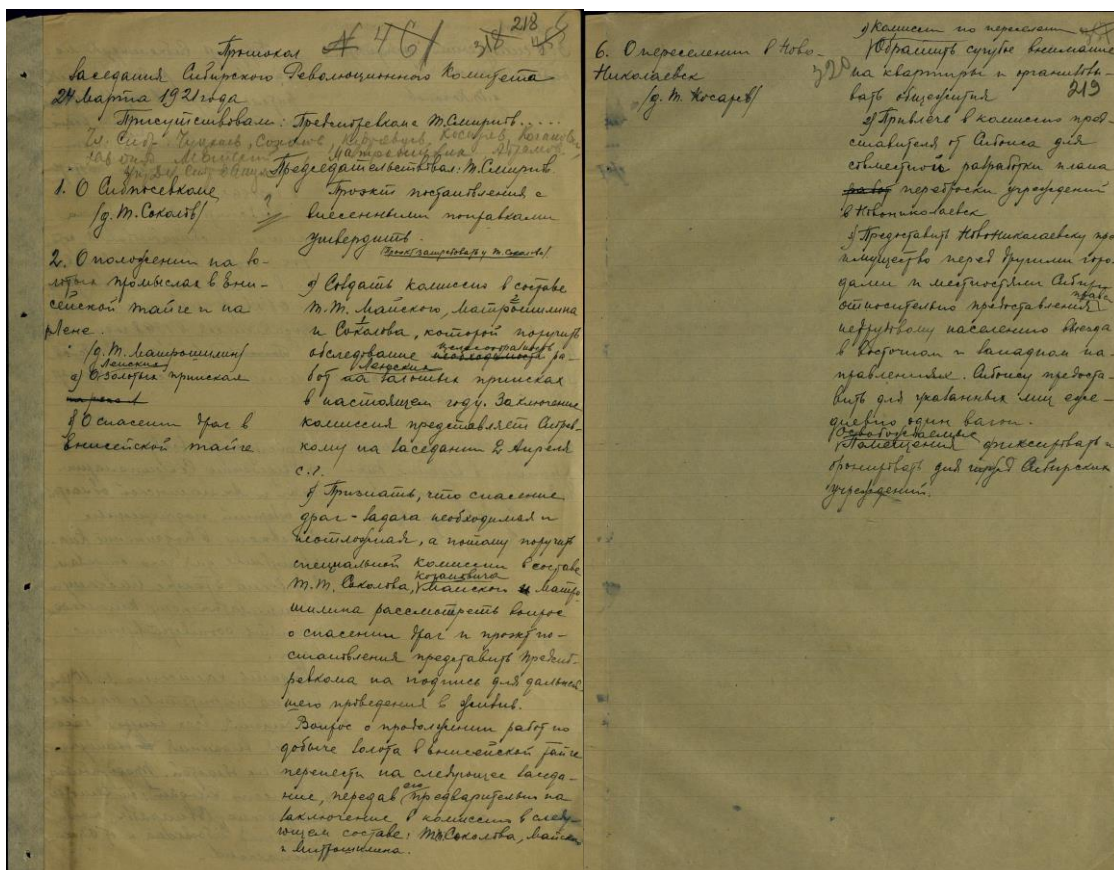 Протокол № 46
218
318
Заседания Сибирского Революционного Комитета
24 Марта 1921 года
Присутствовали: Предсибревкома т. Смирнов
Чл. Сиб. Чуцкаев, Соколов, Косарев
Председательствовал: т. Смирнов
1. О Сибпосевкоме
/д. т. Соколов/
?
Проэкт постановления с
внесенными поправками
утвердить.
/Проэкт затребовать у т. Соколова/
2. О положении на зо-
лотых промыслах в Ени-
сейской тайге и на
Лене.
/д. т. Матрошилин/
Ленских
а) О золотых приисках
б) О спасении драг в
Енисейской тайге
а) Создать комиссию в составе
т.т. Майского, Матрошилина
и Соколова, которой поручить
целесообразность
обследование необходимости ра-
Ленских
бот на золотых приисках
в настоящем году. Заключение
комиссия представляет Сибрев-
кому на заседании 2 Апреля
с.г.
б) Признать, что спасение
драг - задача необходимая и
неотложная, а потому поручить
специальной комиссии в составе
Когановича
т.т. Соколова, Майского и Матро-
шилина рассмотреть вопрос
о спасении драг и проэкт по-
становления представить Предсиб-
ревкома на подпись для дальней-
шего проведения в жизнь.
Вопрос о продолжении работ по
добыче золота в Енисейской тайге
перенести на следующее заседа-
ние, передав его предварительно на
заключение в комиссию в следу-
ющем составе: т.т. Соколова, Майск
и Митрошилина.
6. О переселении в Ново-
Николаевск
/д. т. Косарев/
320
219
1) Комиссии по переселению
Обратить сугубое внимание
на квартиры и организовы-
вать общежития
2) Привлечь в комиссию пред-
ставителя от Сибопса для
совместной разработки плана
переброски учреждений
в Новониколаевск
3) Предоставить Новониколаевску пре
имущество перед другими горо-
дами и местностями Сибири
относительно предоставления права
нетрудовому населению выезда
в восточном и западном на-
правлениях. Сибопсу предоста-
вить для указанных лиц еже-
дневно один вагон.
Освобождаемые
Помещения фиксировать и
бронировать для нужд Сибирских
учреждений.